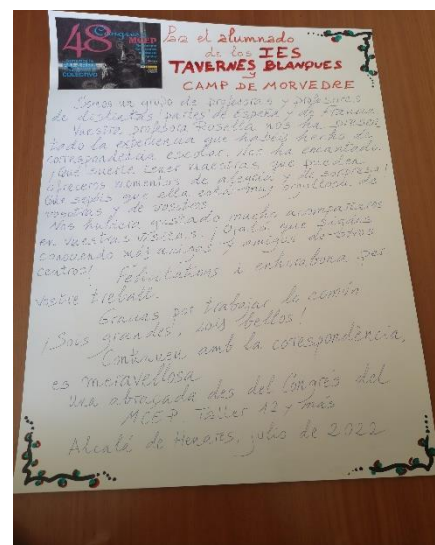 48 Congreso
MCEP
COLECTIVO
Para el alumnado
de los IES
TAVERNES BLANQUES
y
CAMP DE MORVEDRE
Somos un grupo de profesoras y profesores
de distintas partes de España y de Francia
Vuestra profesora Rosella nos ha presen
tado la experiencia que habéis hecho de
correspondencia escolar. Nos ha encantado.
¡Qué suerte tener maestras que pueden
ofreceros momentos de alegría y de sorpresa!
Que sepáis que ella está muy orgullosa de
vosotras y de vosotros
Nos hubiera gustado mucho acompañaros
en vuestras visitas. ¡Ojalá que sigáis
conociendo más amigas y amigos de otros
centros! Felicitations i enhorabona per
vostre treball.
Gracias por trabajar lo común
¡Sois grandes, sois bellos!
Continuen amb la correspondència,
es meravellosa
Una abraçada des del Congrés del
MCEP Taller 12 y más
Alcalá de Henares, julio de 2022